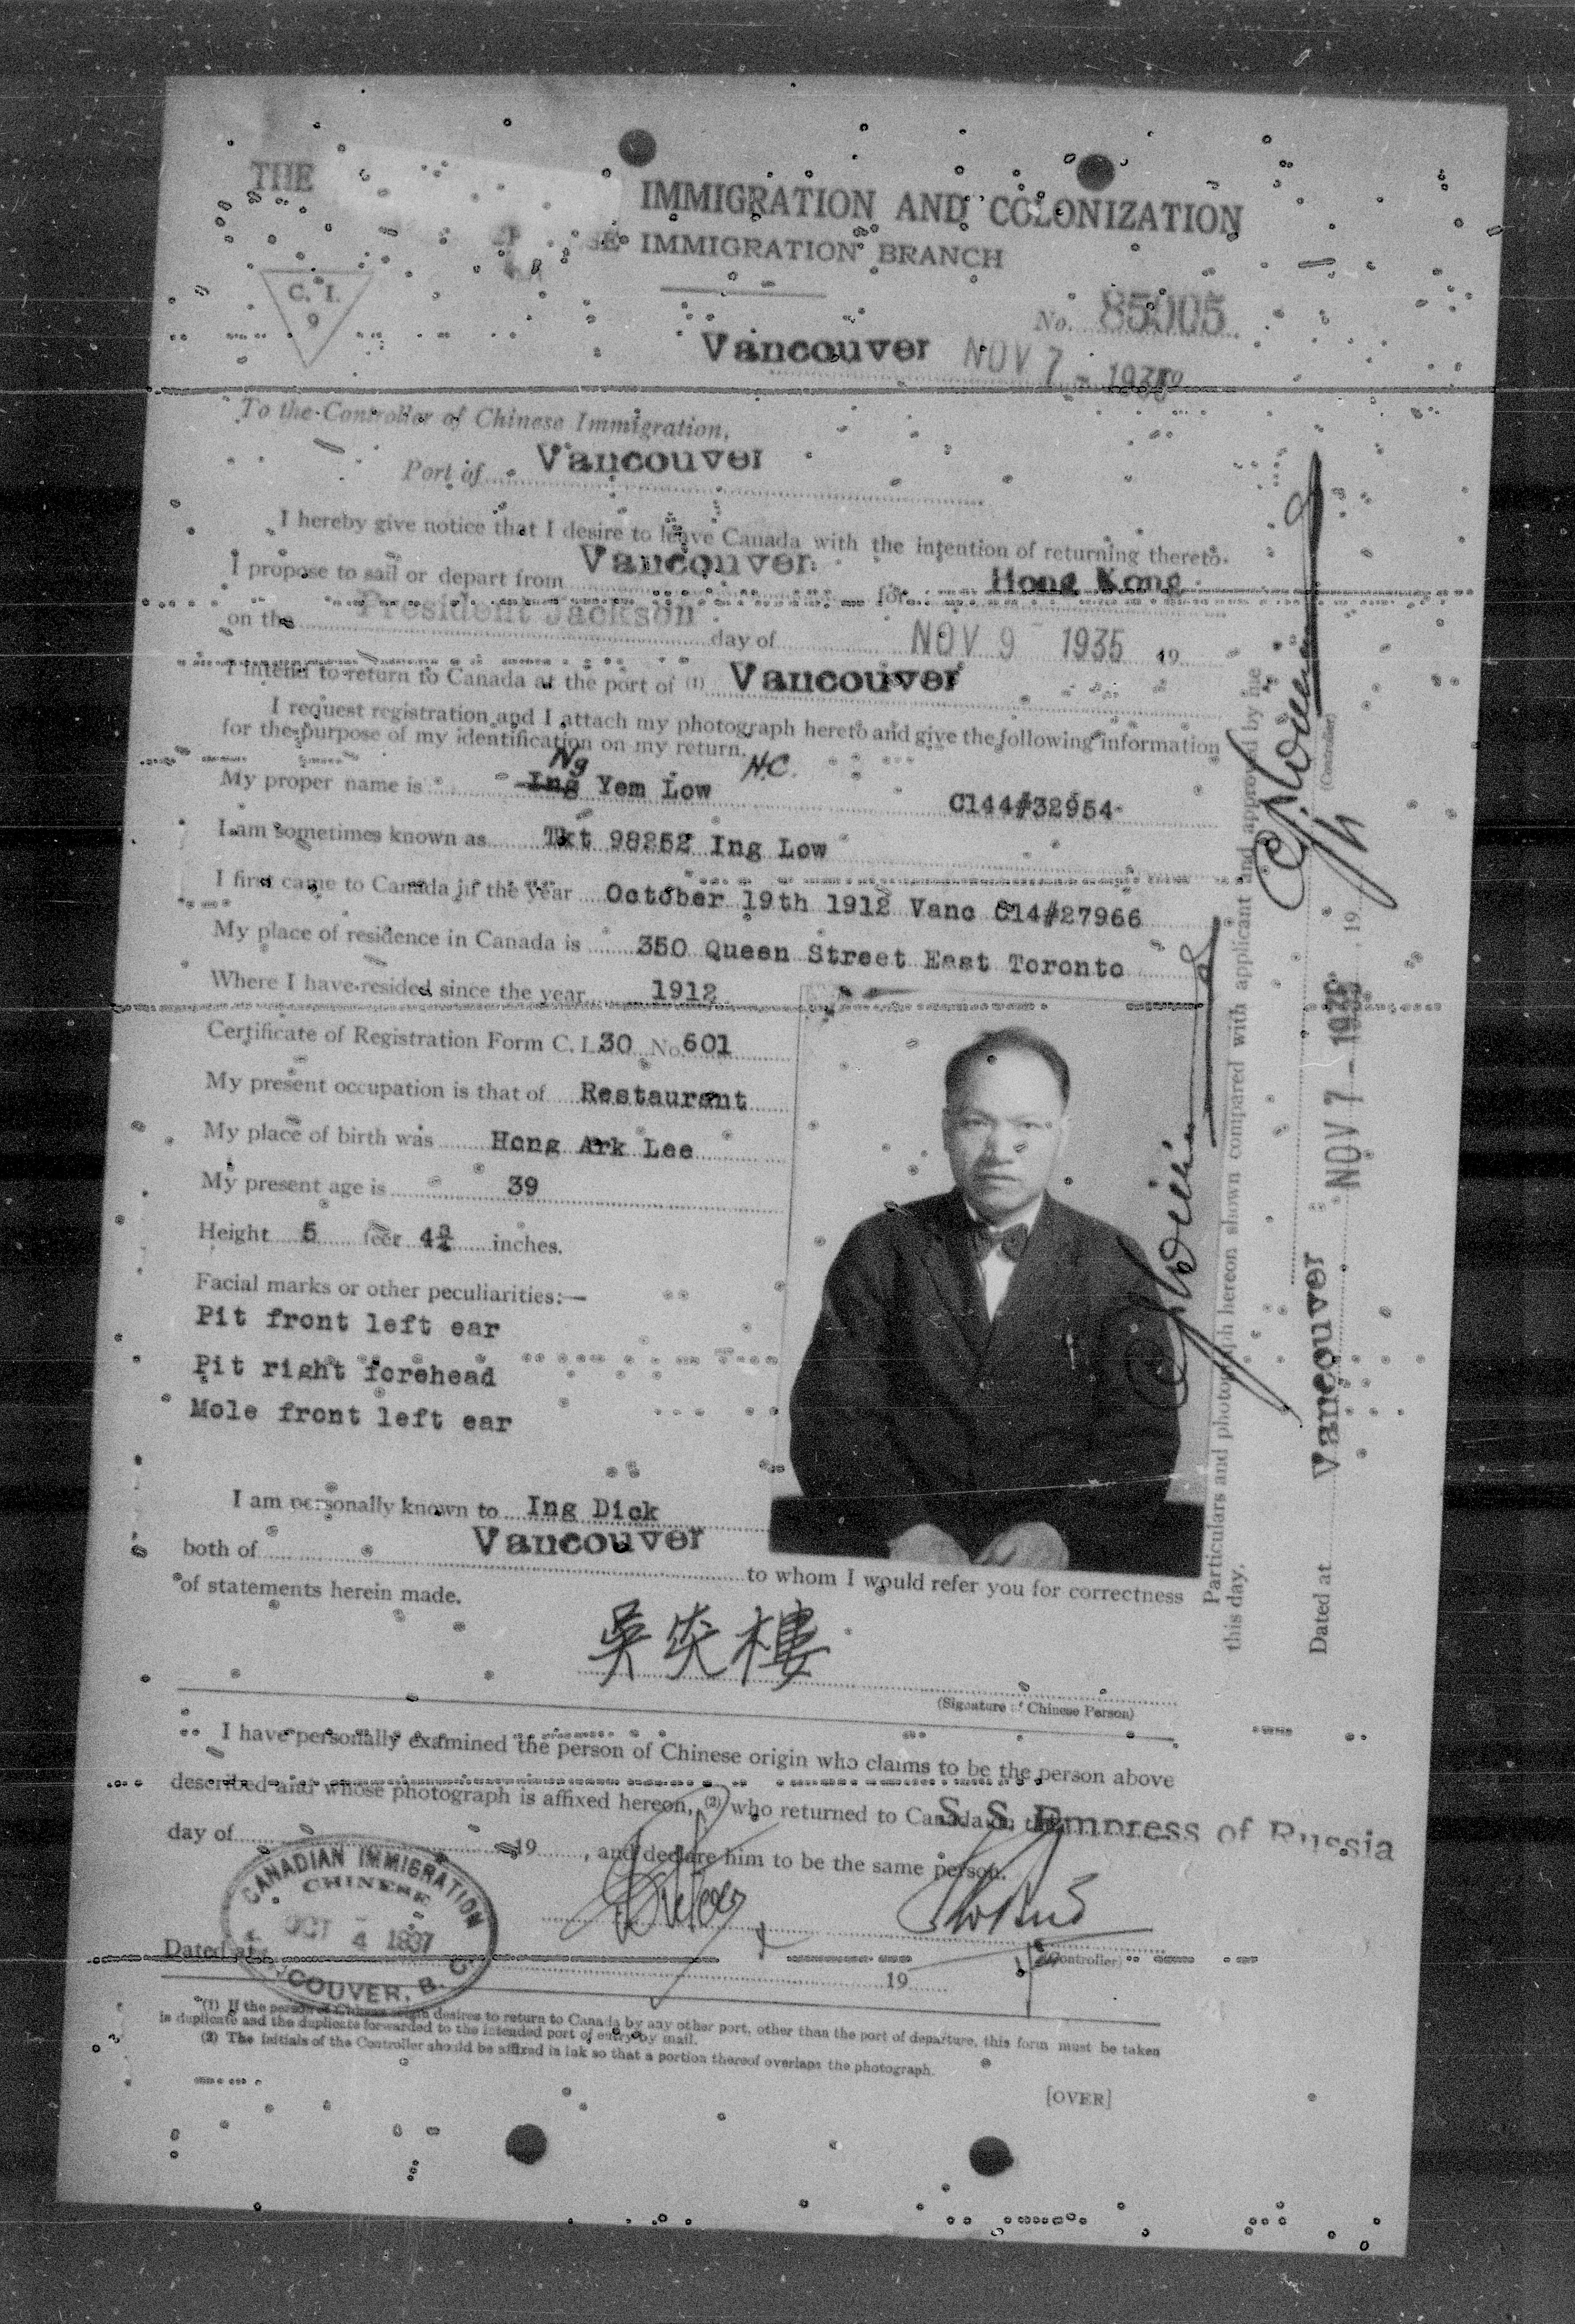 THE IMMIGRATION AND COLONIZATION
SE IMMIGRATION BRANCH
C. I.
9
No. 85005
Vancouver NOV 7 - 1935
To the Controller of Chinese Immigration,
Port of Vancouver
I hereby give notice that I desire to leave Canada with the intention of returning thereto.
I propose to sail or depart from Vancouver for Hong Kong
on the President Jackson day of NOV 9 - 1935 19
I intend to return to Canada at the port of (1) Vancouver
I request registration and I attach my photograph hereto and give the following information
for the purpose of my identification on my return.
Ng N.C.
My proper name is Ing Yem Low C144#32954
I am sometimes known as Tkt 98252 Ing Low
I first came to Canada in the year October 19th 1912 Vanc C14#27966
My place of residence in Canada is 350 Queen Street East Toronto
Where I have resided since the year 1912
Certificate of Registration Form C. I. 30 No. 601
My present occupation is that of Restaurant
My place of birth was Hong Ark Lee
My present age is 39
Height 5 feet 4¾ inches.
Facial marks or other peculiarities:—
Pit front left ear
Pit right forehead
Mole front left ear
I am personally known to Ing Dick
both of Vancouver
to whom I would refer you for correctness
of statements herein made.
吳炎樓
(Signature of Chinese Person)
I have personally examined the person of Chinese origin who claims to be the person above
described and whose photograph is affixed hereon, (2) who returned to Canada on the S. S. Empress of Russia
day of 19 , and declare him to be the same person.
CANADIAN IMMIGRATION
CHINESE
OCT 4 1937
COUVER, B. C.
Dated at 19
(Controller)
(1) If the person of Chinese origin desires to return to Canada by any other port, other than the port of departure, this form must be taken
in duplicate and the duplicate forwarded to the intended port of entry by mail.
(2) The initials of the Controller should be affixed in ink so that a portion thereof overlaps the photograph.
[OVER]
Particulars and photograph hereon shown compared with applicant and approved by me
this day.
(Controller)
Dated at Vancouver NOV 7 - 1935 19